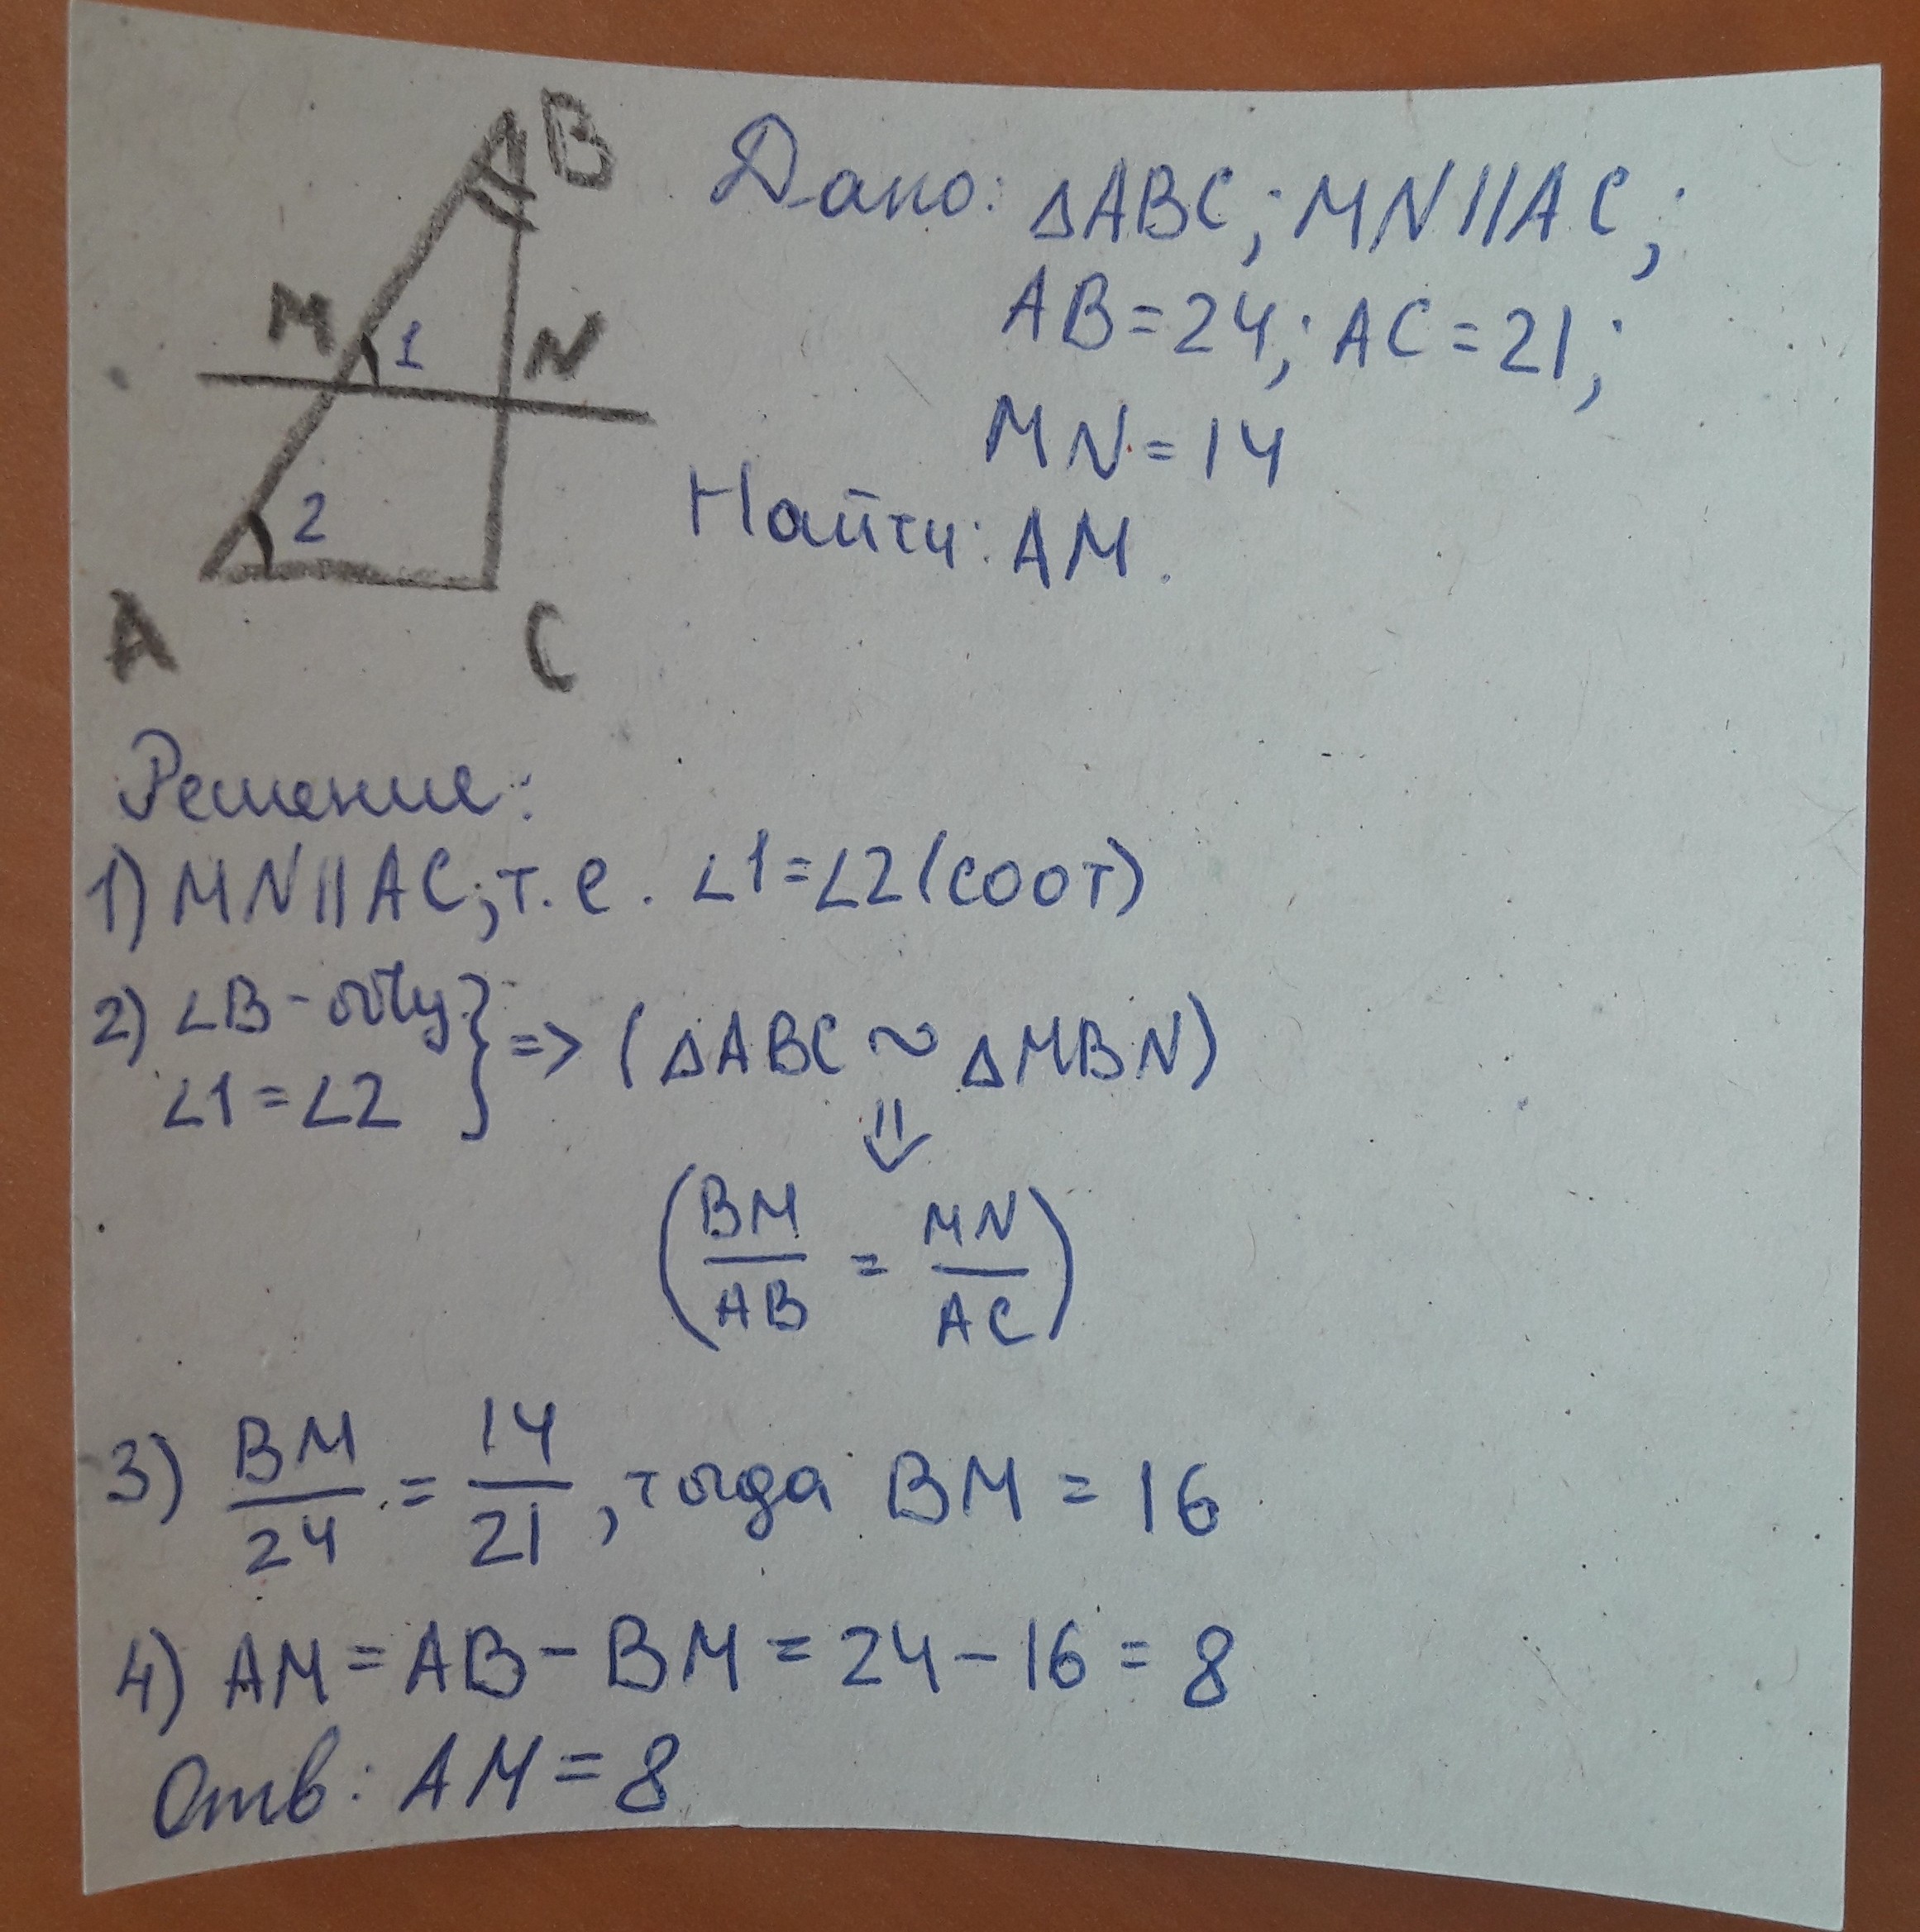 B
M
1
N
2
A
C
Дано: ΔABC; MN||AC;
AB=24; AC=21;
MN=14
Найти: AM.
Решение:
1) MN||AC, т.е. ∠1=∠2 (соот)
2) ∠B-общ. } => (ΔABC ~ ΔMBN)
∠1=∠2
⇓
(BM/AB = MN/AC)
3) BM/24 = 14/21, тогда BM = 16
4) AM = AB - BM = 24 - 16 = 8
Отв: AM = 8